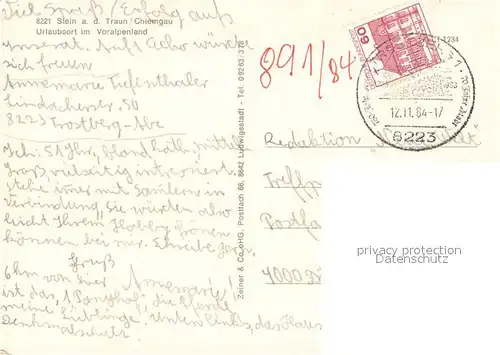 8221 Stein a. d. Traun / Chiemgau
Urlaubsort im Voralpenland
Viel Spaß / Erfolg auf's
Inserat. Auf 1 Echo würde
sich freuen
Annemarie Tiefenthaler
Lindacherstr. 50
8223 Trostberg - Alz
Ich: 51 Jhr, blond, mittel
groß, vielseitig interessiert.
stehe immer mit Samlern in
Verbindung, Sie würden also
leicht Ihrem Hobby frönen
können bei mir. Schreibe gern,
Gruß
Annemarie!
6 km von hier
ist das, 1 Ponyhof, die Pferde
meine Lieblinge. Unten links, das Haus
Denkmalschutz.
Zeiner & Co. oHG, Postfach 66, 8642 Ludwigsstadt - Tel. 09263/376
891/84
60
1234
12.11.84-17
8223
Redaktion
Treffp
Postfa
4000 D
privacy protection
Datenschutz